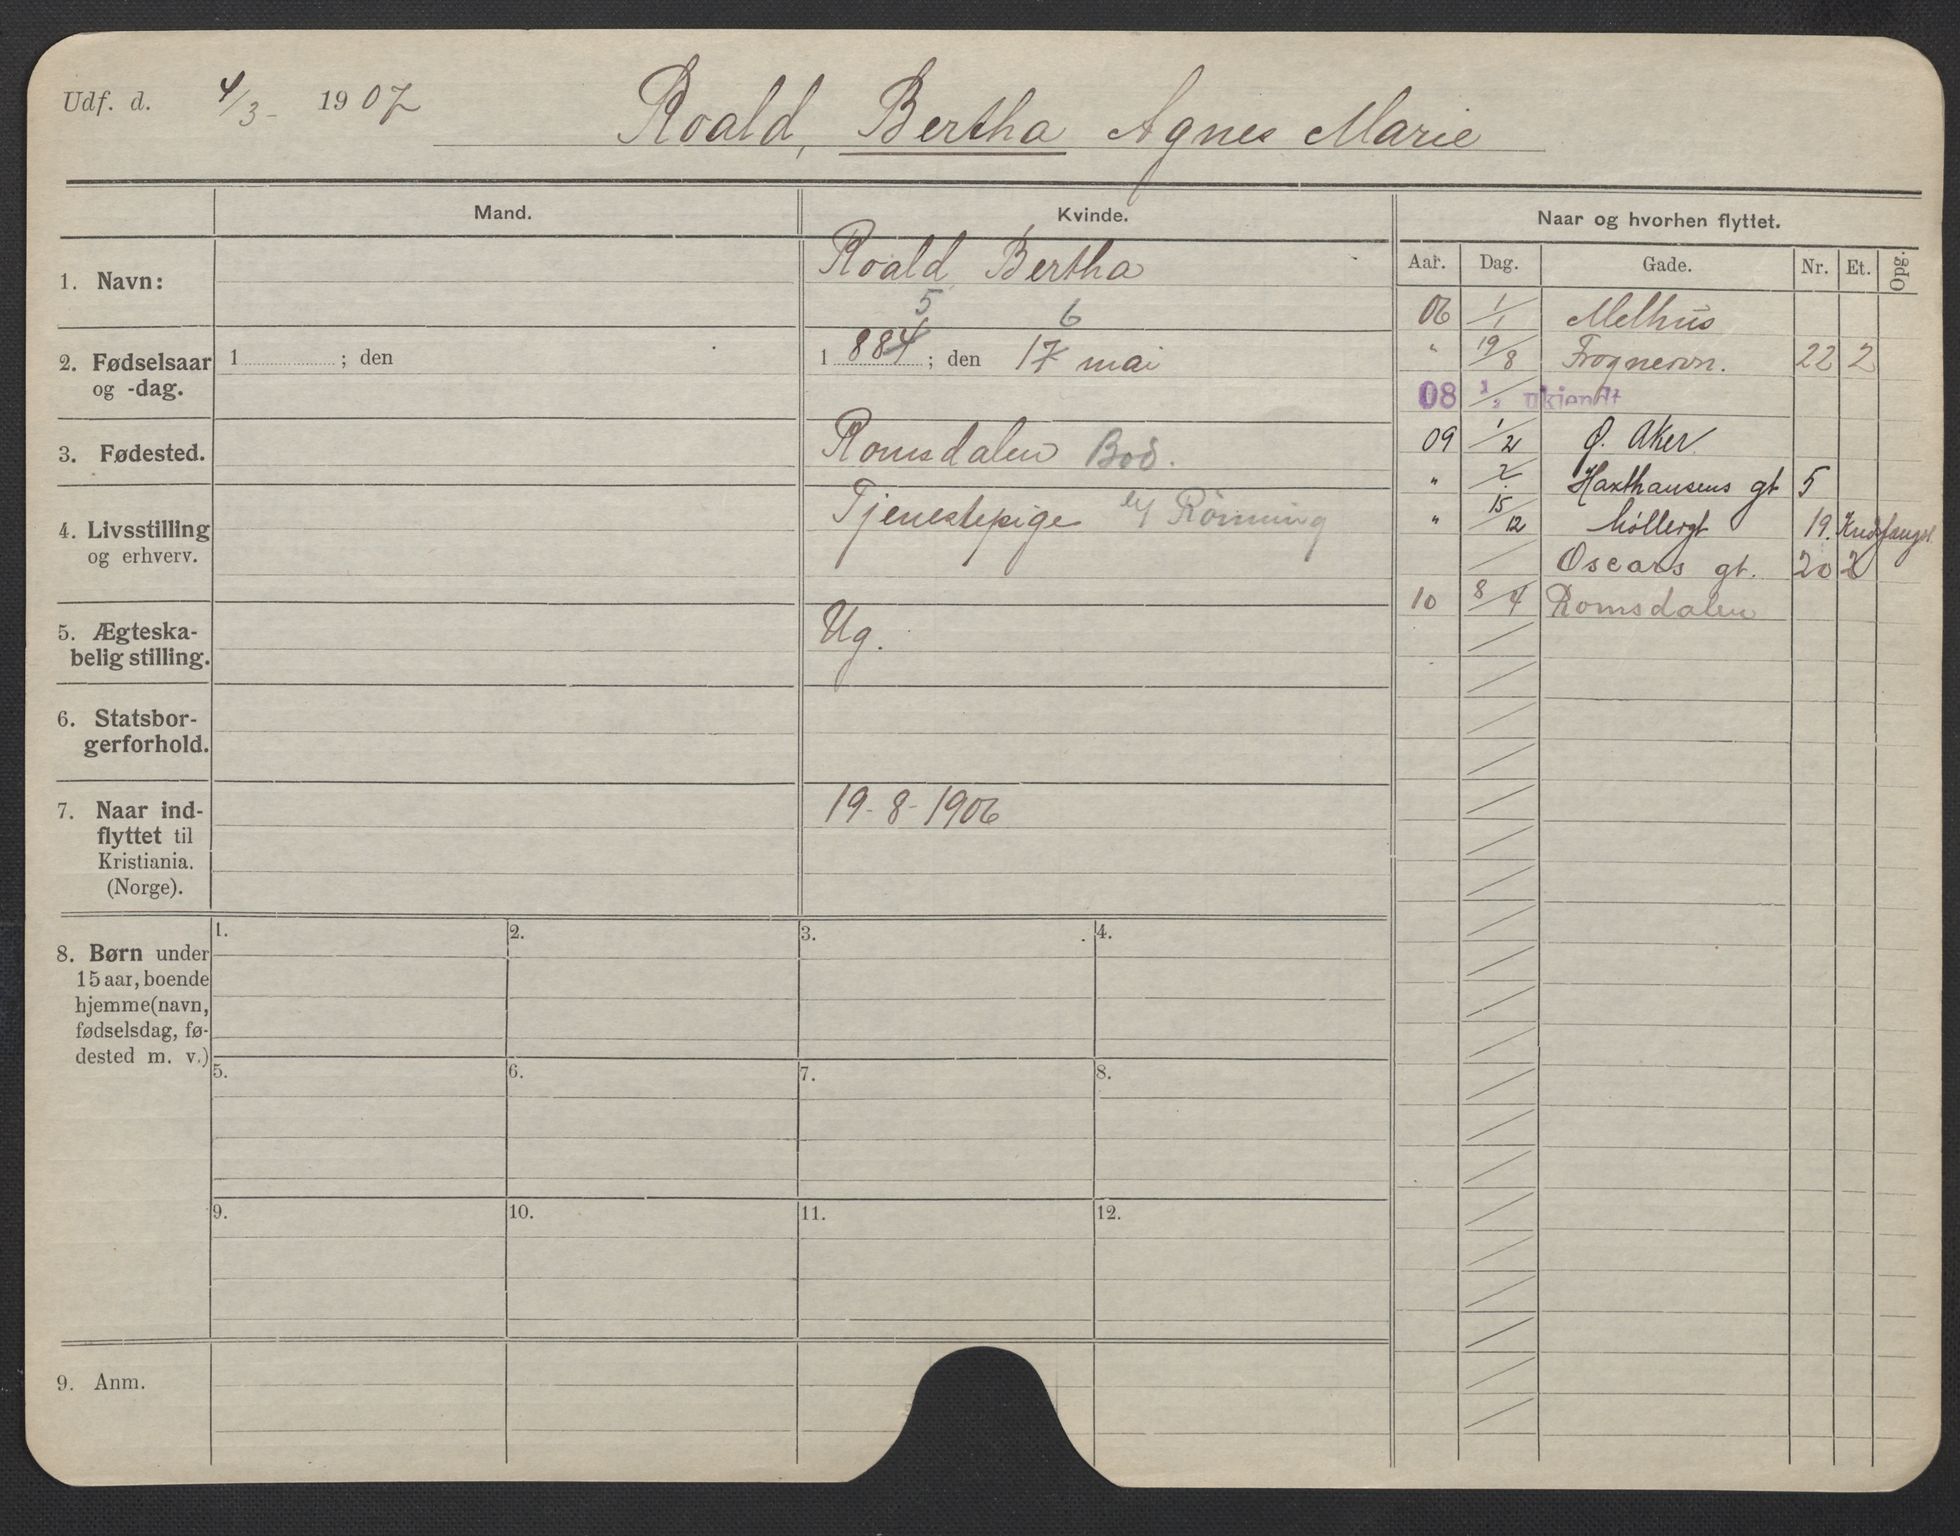 Udf. d. 4/3- 1907
Roald, Bertha Agnes Marie
Mand.
Kvinde.
Naar og hvorhen flyttet.
Aar. Dag. Gade. Nr. Et. Opg.
1. Navn:
Roald Bertha
2. Fødselsaar
og -dag.
1 ; den
5 6
1 884 ; den 17 mai
3. Fødested.
Romsdalen Bod.
4. Livsstilling
og erhverv.
Tjenestepige Rønning
5. Ægteska-
belig stilling.
Ug.
6. Statsbor-
gerforhold.
7. Naar ind-
flyttet til
Kristiania.
(Norge).
19-8-1906
8. Børn under
15 aar, boende
hjemme (navn,
fødselsdag, fø-
dested m. v.)
1. 2. 3. 4.
5. 6. 7. 8.
9. 10. 11. 12.
9. Anm.
06 1/1 Melhus
" 19/8 Frognervn. 22 2
08 1/2 ukjendt
09 1/2 Ø. Aker
" ? Haxthausens gt 5
" 15/12 Møllergt 19.
Oscars gt. 20 2
10 8/4 Romsdalen